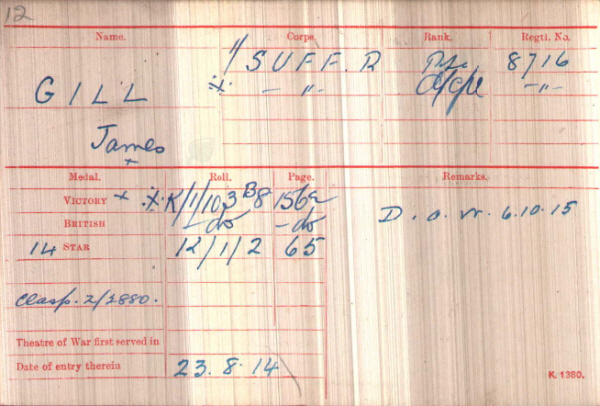 12
Name. Corps. Rank. Regtl. No.
1/ SUFF. R Pte 8716
GILL ⁒ — " — A/Cpl — " —
James
+
Medal. Roll. Page. Remarks.
VICTORY + ⁒ K/1/103 B8 1562
BRITISH — do — do D. o. W. 6.10.15
14 STAR K/1/2 65
Clasp. 2/1880.
Theatre of War first served in
Date of entry therein 23.8.14
K. 1380.